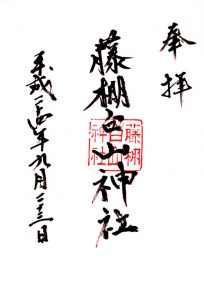 奉拝
藤棚白山神社
藤棚
白山
神社
平成二十四年九月二十三日